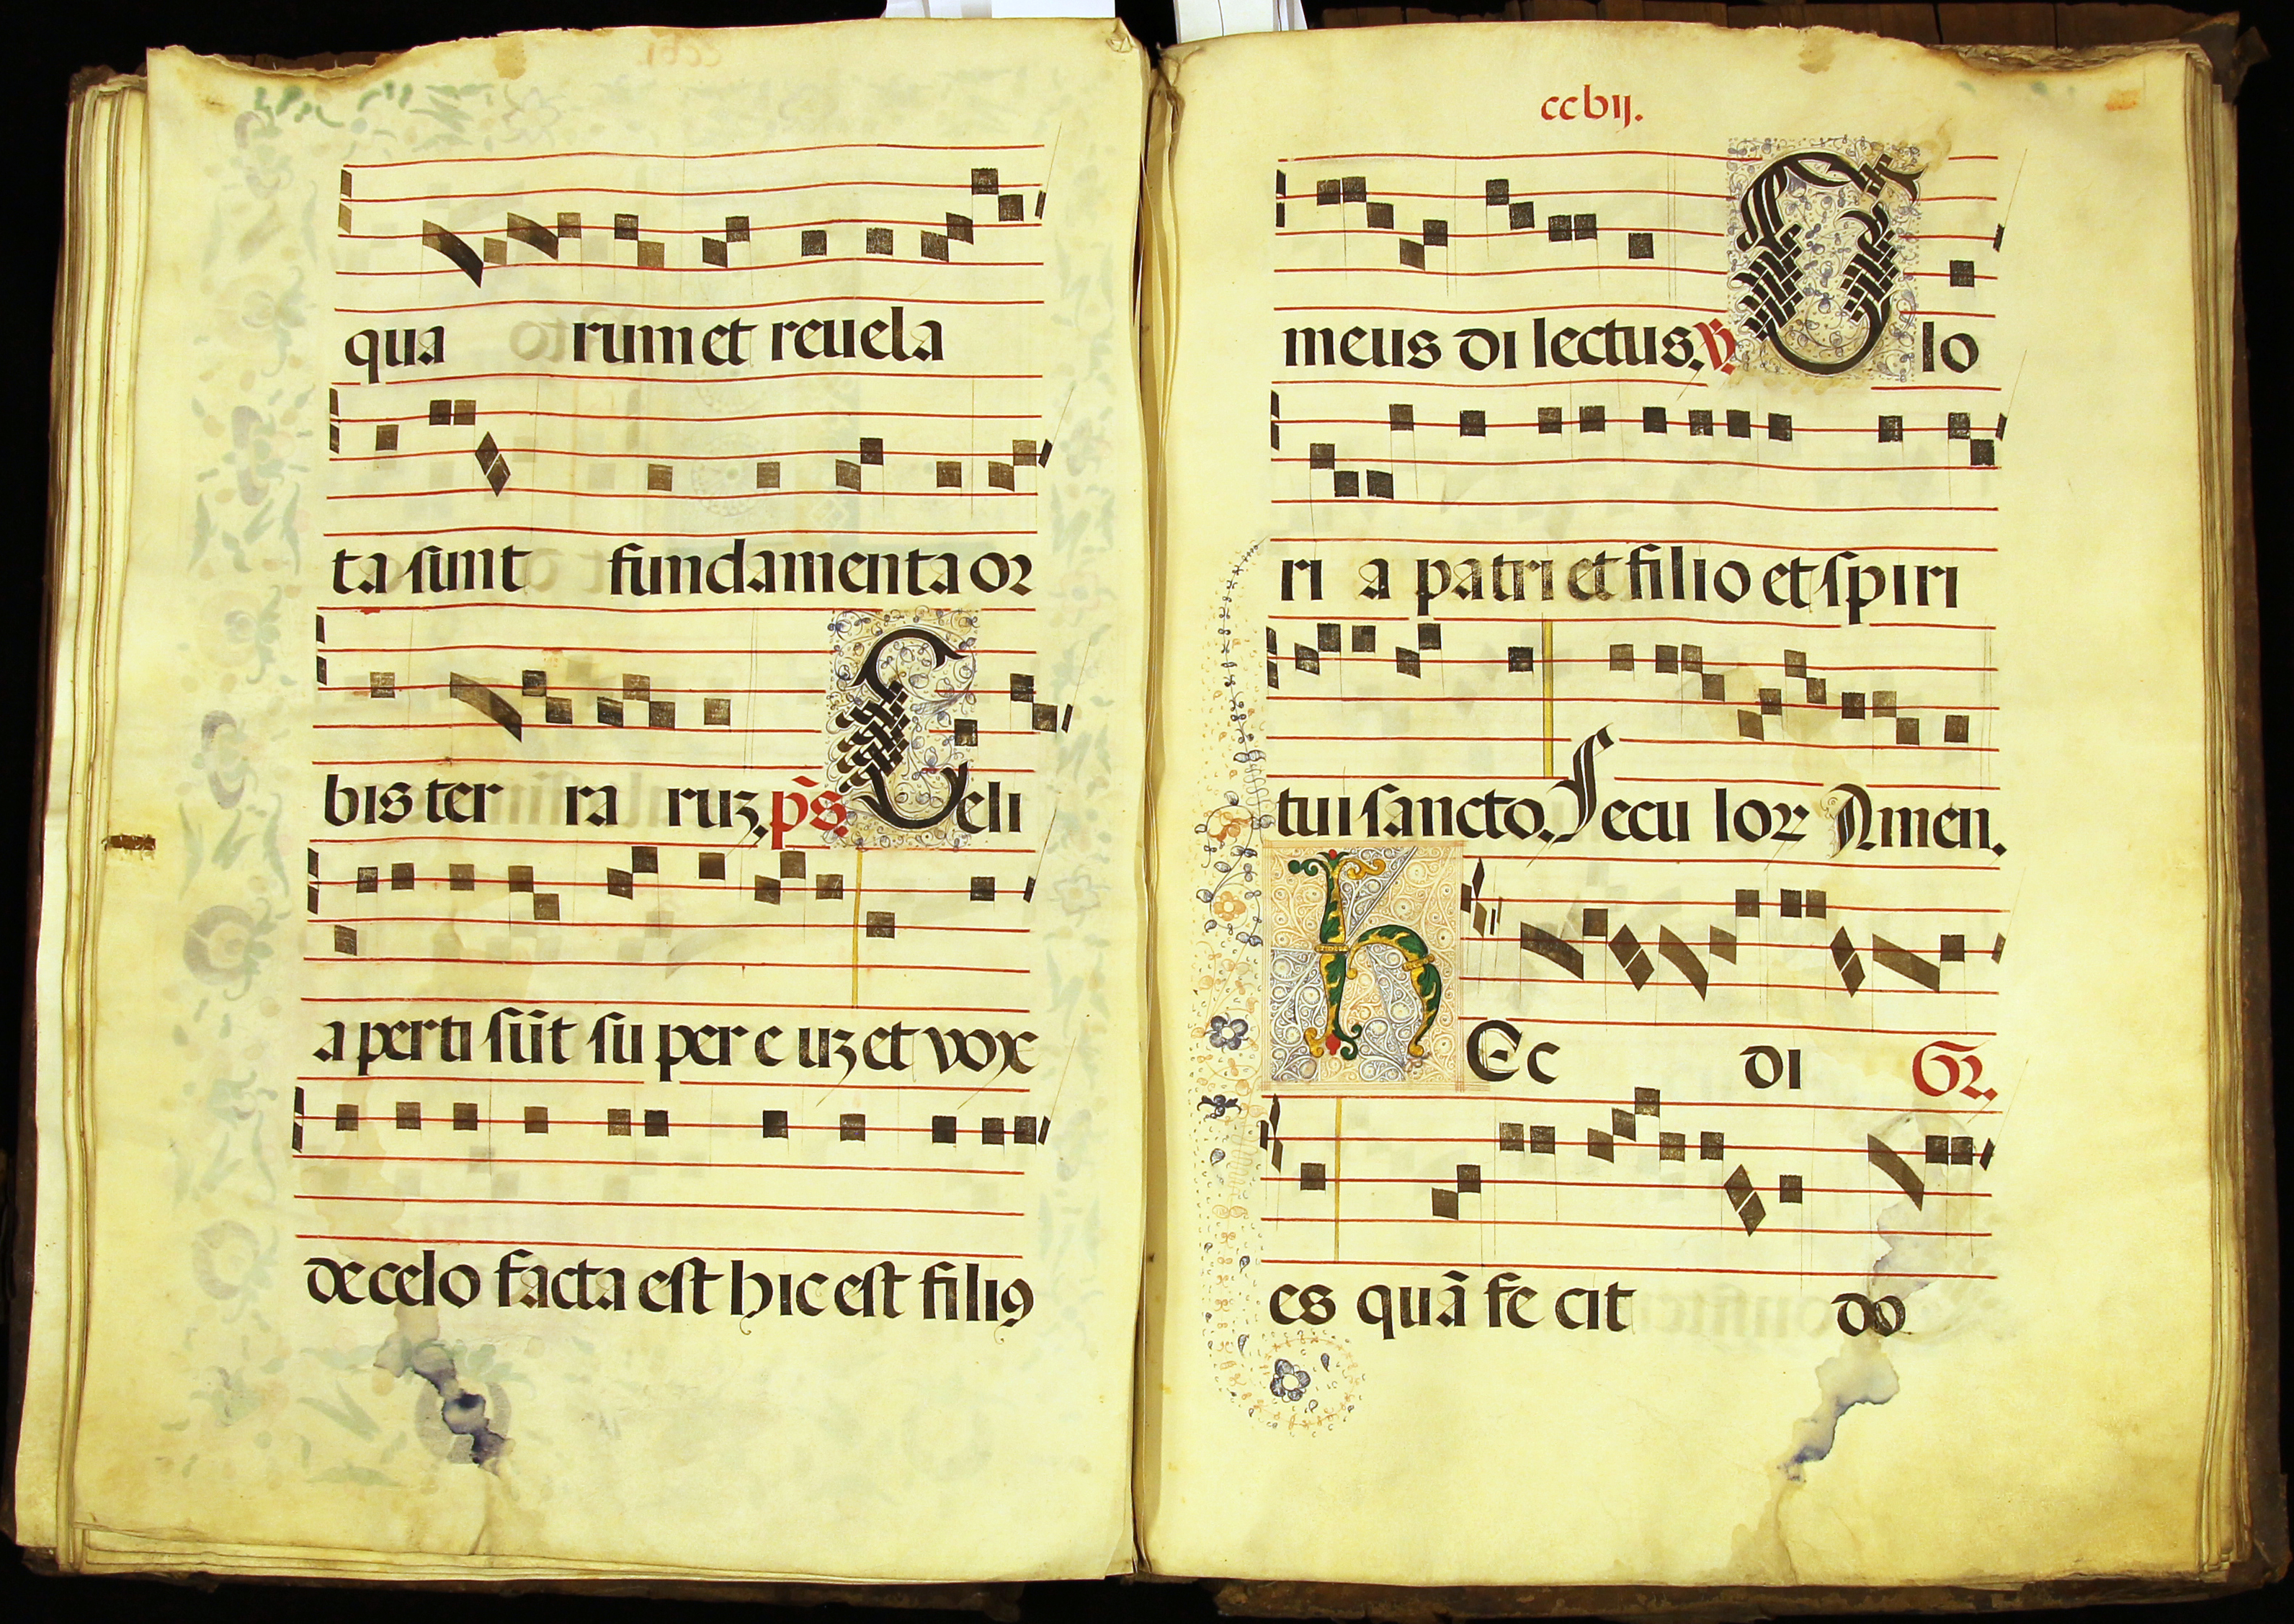 qua rum et reuela
ta sunt fundamenta or
bis ter ra ruz. ps. Celi
aperti sūt su per e uz et vox
de celo facta est hic est filiꝯ
ccvij.
meus di lectus. ℣. Glo
ri a patri et filio et spiri
tui sancto. Secu loꝝ Amen.
hEc di Gr.
es quā fe cit do